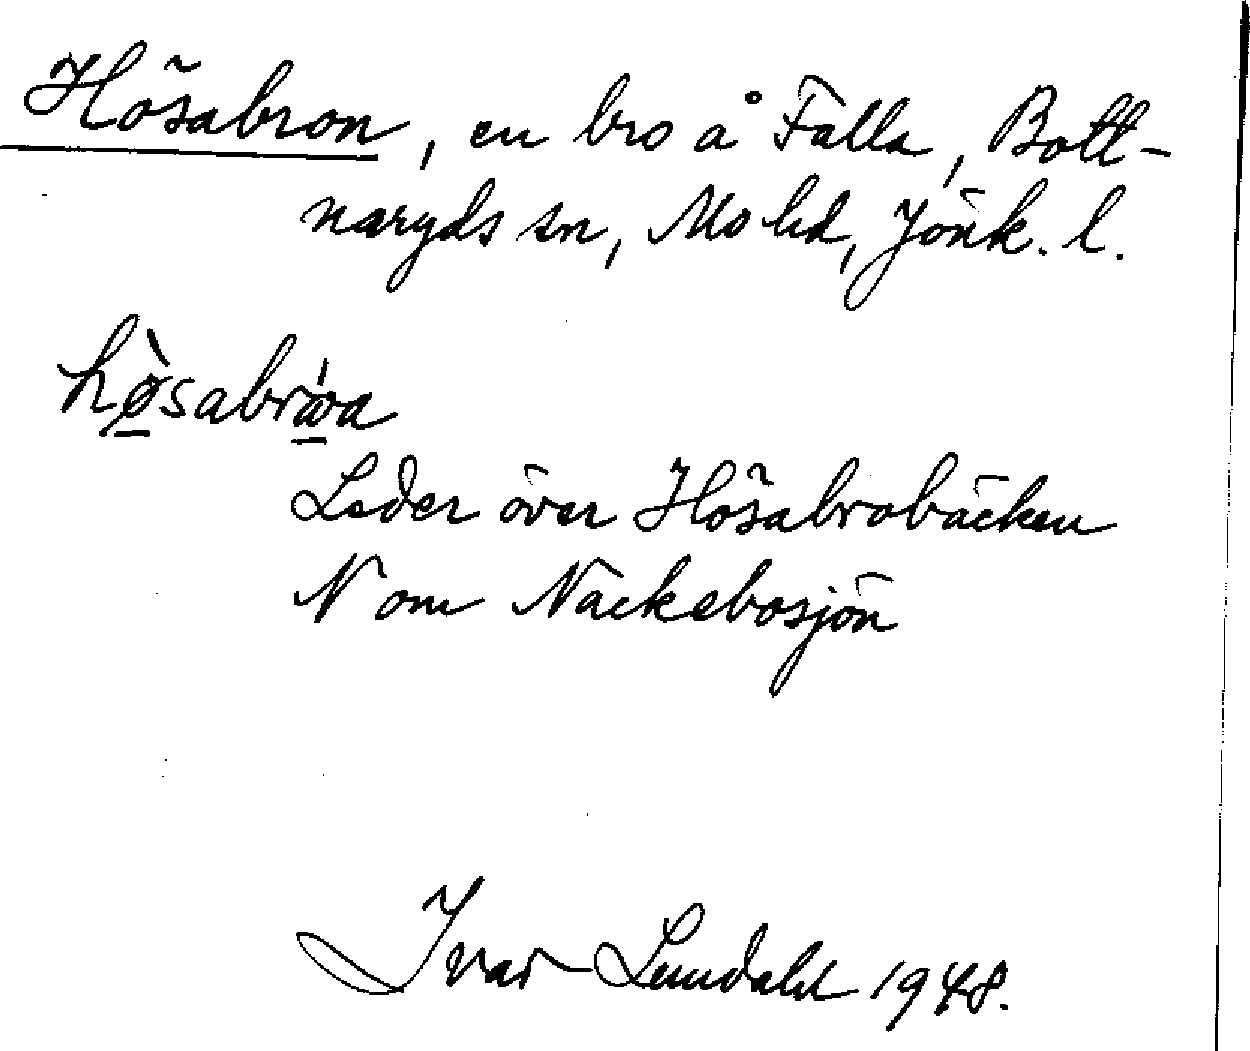 Hösabron, en bro å Falla, Bott-
naryds sn, Mo hd, Jönk. l.
hø̀sabrówa
Leder över Hösabrobäcken
N om Nackebosjön
Ivar Lundahl 1948.